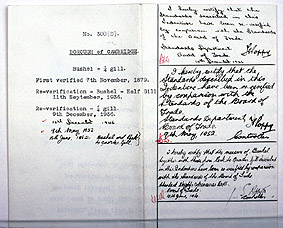 No. 300(S).
BOROUGH OF CAMBRIDGE.
Bushel - ¼ gill.
First verified 7th November, 1879.
Re-verification - Bushel - Half Gill
11th September, 1936.
Re-verification - ¼ gill.
9th December, 1936.
9th May, 1952
I hereby certify that the
Standards described in this
Indenture have been re-verified
by comparison with the Standards
of the Board of Trade.
Standards Department
Board of Trade
I hereby certify that the
Standards deposited in this
Indenture have been re-verified
by comparison with the
Standards of the Board of
Trade.
Standards Department
Board of Trade
9th May, 1952
I hereby certify that the measures of Bushel
in this Indenture have been re-verified by comparison
with the Standards of the Board of Trade
Board of Trade